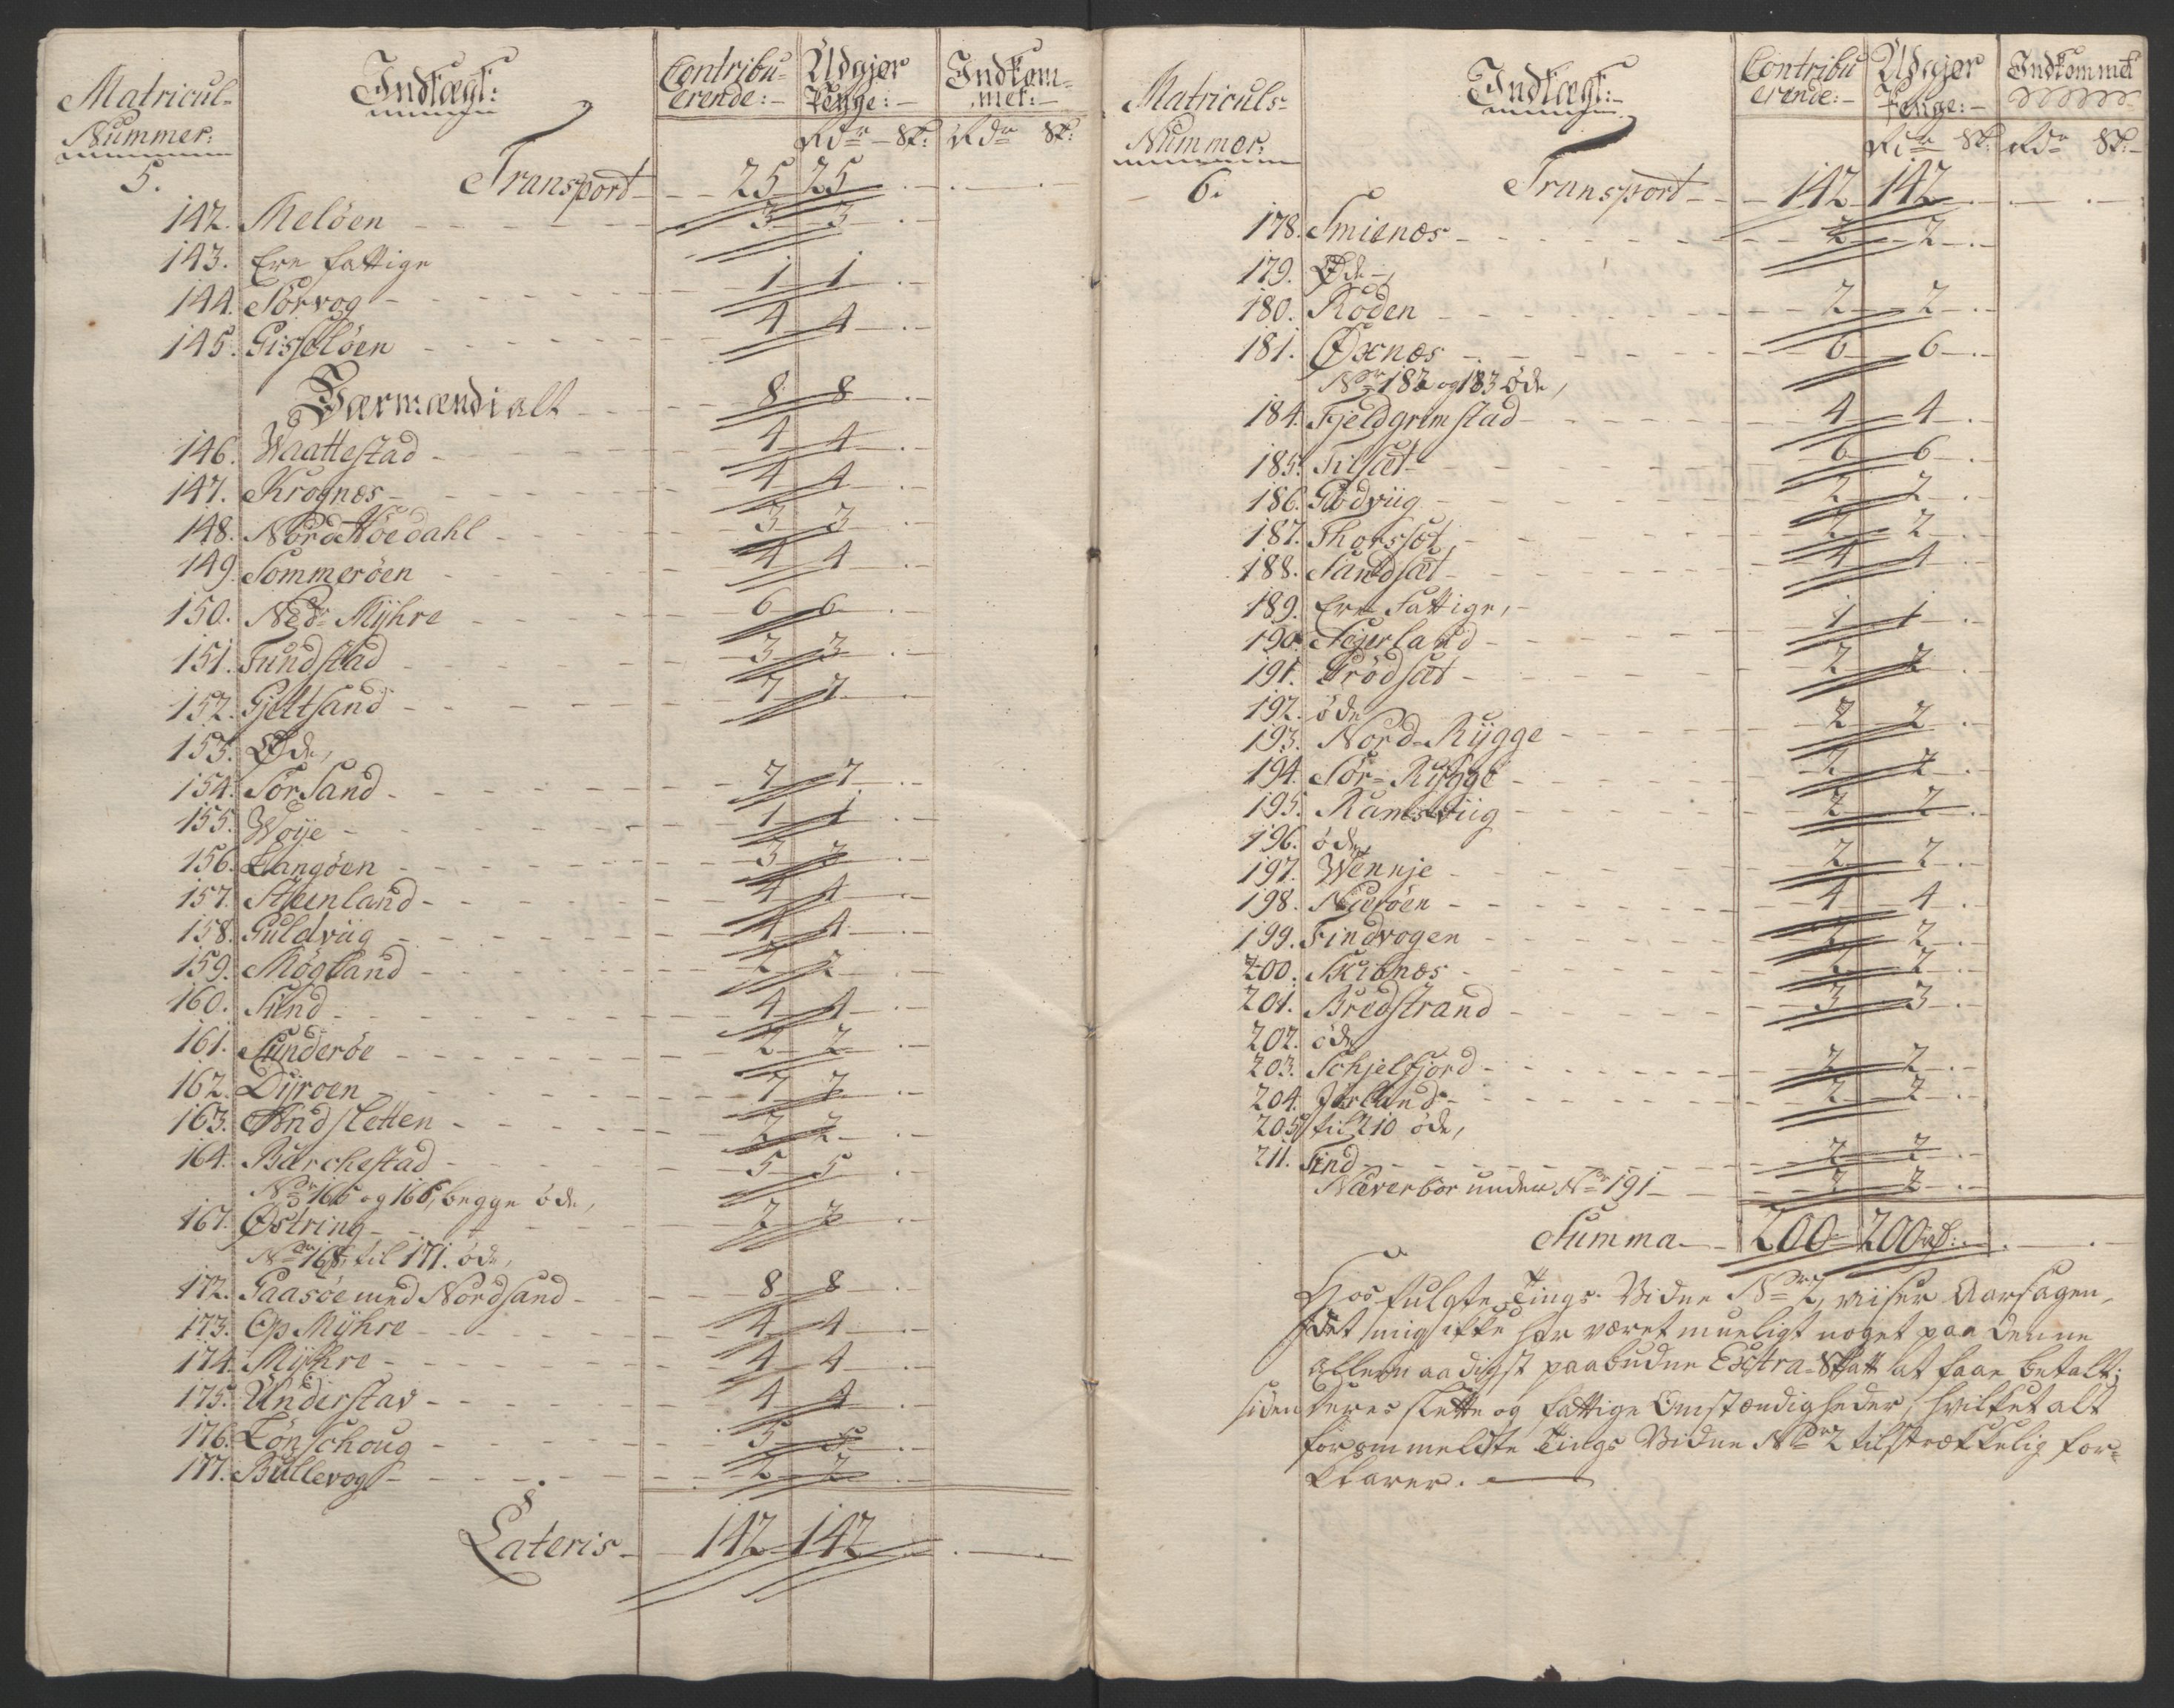 Matricul-
Nummer:
Indtægt:
Contribu-
erende:
Udgjør
Penge:
Indkom-
met:
Rdr Sk: Rdr Sk:
5. Transport 25 25
142. Melöen 3 3
143. Ere fattige
144. Sörvog 1 1
145. Gisselöen 4 4
Børmænd i alt 8 8
146. Waattestad 4 4
147. Krognæs 4 4
148. Nord Höedahl 3 3
149. Sommeröen 4 4
150. Nedr Mÿhre 6 6
151. Tundstad 3 3
152. Gjeltsand 7 7
153. Øde,
154. Sør Sand 7 7
155. Woije 1 1
156. Langöen 3 3
157. Steenland 4 4
158. Guldviig 4 4
159. Mögland 2 2
160. Sund 4 4
161. Sunderöe 2 2
162. Dÿroen 7 7
163. Andsletten 2 2
164. Barchestad 5 5
Nr 165 og 166, begge öde,
167. Østring 2 2
Nr 168, til 171. öde,
172. Gaasöe med Nordsand 8 8
173. Op Mÿhre 4 4
174. Mÿhre 4 4
175. Understav 4 4
176. Lönschoug 5 5
177. Bullevog 2 2
Lateris 142 142
Matriculs-
Nummer:
Indtægt:
Contribu
erende:
Udgjør
Penge:
Indkommet
Rdr Sk: Rdr Sk:
6. Transport 142 142
178. Smienæs 2 2
179. Øde
180. Röden 2 2
181. Øxnæs 6 6
Nr 182 og 183 öde,
184. Fjeldgrimstad 4 4
185. Tilsæt 6 6
186. Glödviig 2 2
187. Thorssæt 2 2
188. Sandsæt 4 4
189. Ere Fattige,
190. Sejerland 1 1
191. Frödsæt 2 2
192. öde
193. Nord-Rÿgge 2 2
194. Sör-Rÿgge 2 2
195. Ramsviig 2 2
196. öde,
197. Wennje 2 2
198. Nieröen 4 4
199. Findvogen 2 2
200. Skibnæs 2 2
201. Bredstrand 3 3
202. öde
203. Schjelfjord 2 2
204. Jörland 2 2
205 til 210 öde,
211. Find 2 2
Næverbor under Nr 191 2 2
Summa 200 200 rd:
Hosfulgte Tings Vidne Nr 2, viiser Aarsagen,
det mig ikke har været mueligt noget paa denne
allernaadigst paabudne Extra-Skatt at faae betalt;
siden deres slette og fattige Omstændigheder, hvilket alt
forommeldte Tings Vidne Nr 2 tilstrækkelig for-
klarer.